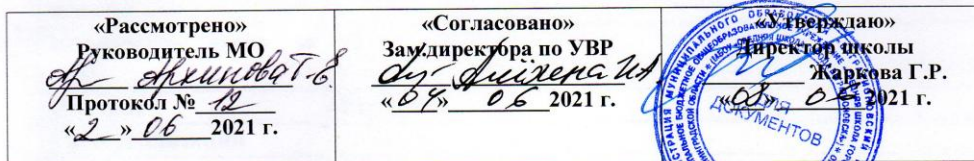 «Рассмотрено»
Руководитель МО
Архипова Т.В.
Протокол № 12
«2» 06 2021 г.
«Согласовано»
Зам.директора по УВР
«04» 06 2021 г.
«Утверждаю»
Директор школы
Жаркова Г.Р.
«08» 2021 г.
ДЛЯ
ДОКУМЕНТОВ